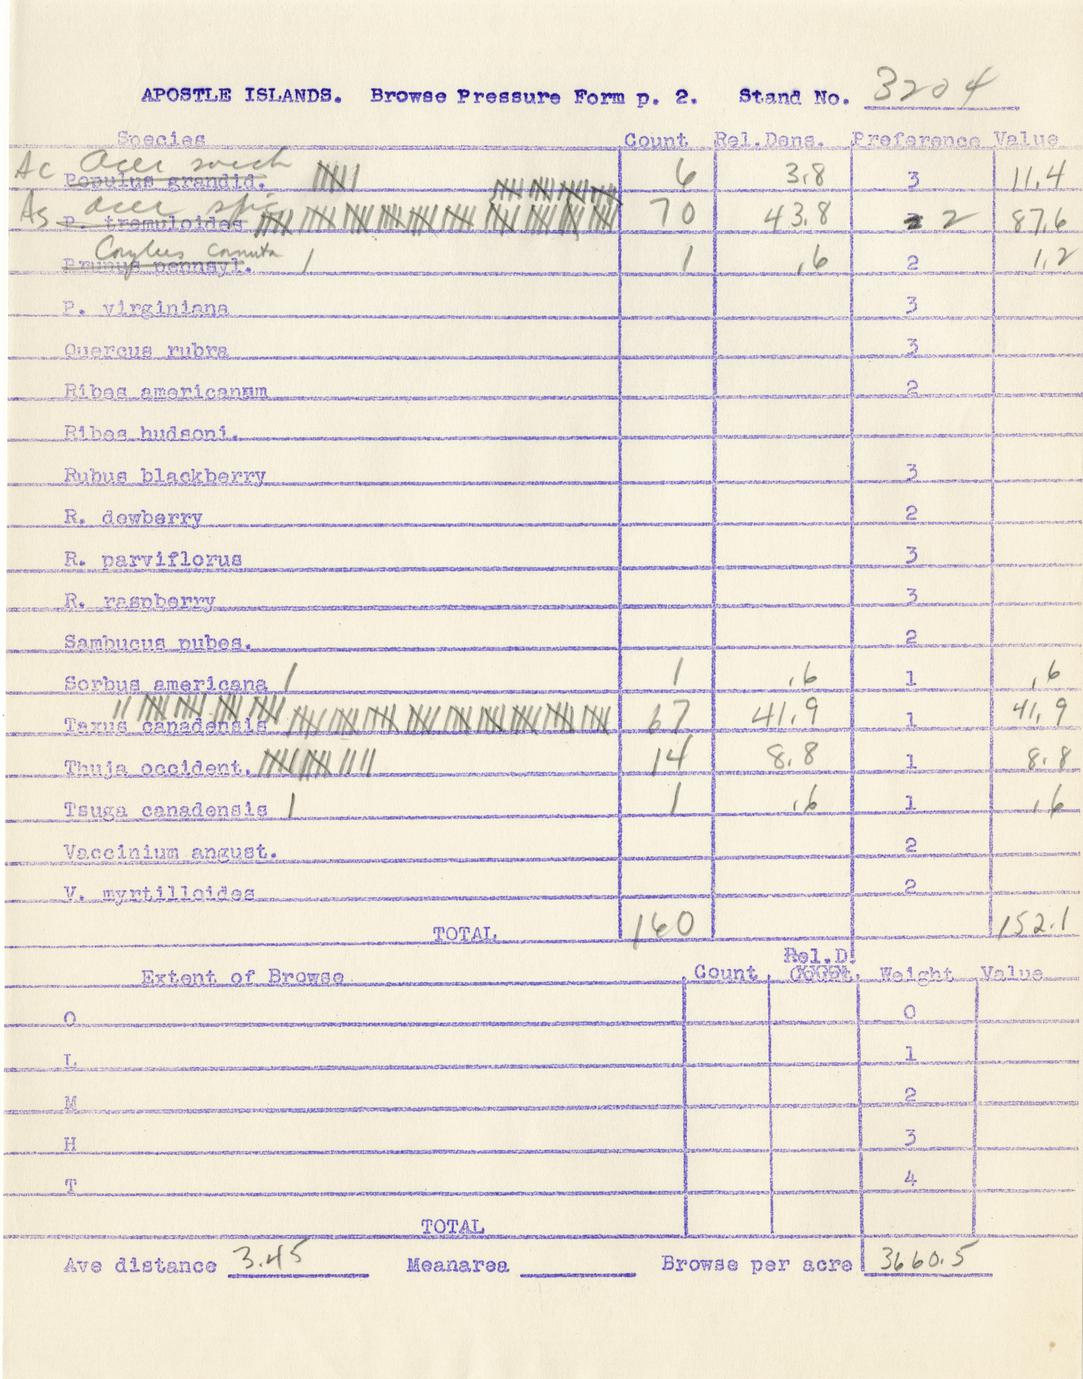 APOSTLE ISLANDS. Browse Pressure Form p. 2. Stand No. 3204
Species Count Rel.Dens. Preference Value
Ac Acer sacch
Populus grandid. 6 3.8 3 11.4
As acer spic
P. tremuloides 70 43.8 2 2 87.6
Corylus cornuta
Prunus pennsyl. 1 .6 2 1.2
P. virginiana 3
Quercus rubra 3
Ribes americanum 2
Ribes hudsoni.
Rubus blackberry 3
R. dewberry 2
R. parviflorus 3
R. raspberry 3
Sambucus pubes. 2
Sorbus americana 1 .6 1 .6
Taxus canadensis 67 41.9 1 41.9
Thuja occident. 14 8.8 1 8.8
Tsuga canadensis 1 .6 1 .6
Vaccinium angust. 2
V. myrtilloides 2
TOTAL 160 152.1
Rel.D.
Extent of Browse Count Weight Value
O 0
L 1
M 2
H 3
T 4
TOTAL
Ave distance 3.45 Meanarea Browse per acre 3660.5